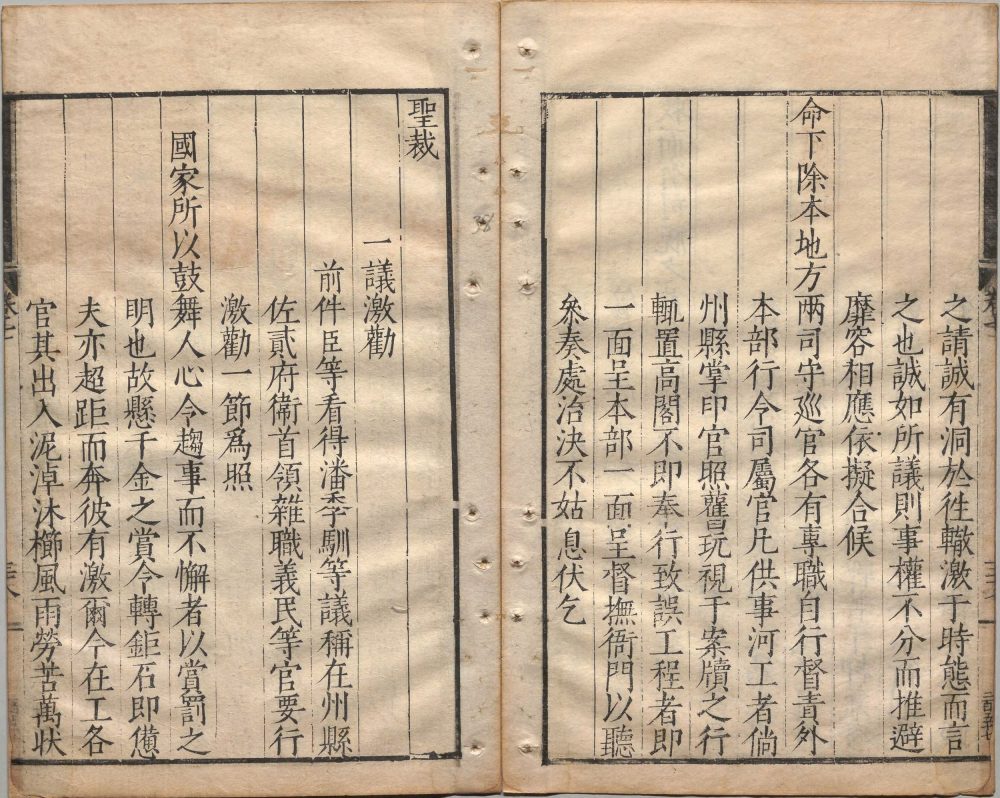 之請誠有洞於徃轍激于時態而言
之也誠如所議則事權不分而推避
靡容相應依擬合候
命下除本地方兩司守廵官各有專職自行督責外
本部行令司屬官凡供事河工者倘
州縣掌印官照舊玩視于案牘之行
輒置高閣不即奉行致誤工程者即
一面呈本部一面呈督撫衙門以聽
叅奏處治決不姑息伏乞
聖裁
一議激勸
前件臣等看得潘季馴等議稱在州縣
佐貳府衛首領雜職義民等官要行
激勸一節爲照
國家所以鼓舞人心令趨事而不懈者以賞罰之
明也故懸千金之賞令轉鉅石即憊
夫亦超距而奔彼有激爾今在工各
官其出入泥淖沐櫛風雨勞苦萬狀